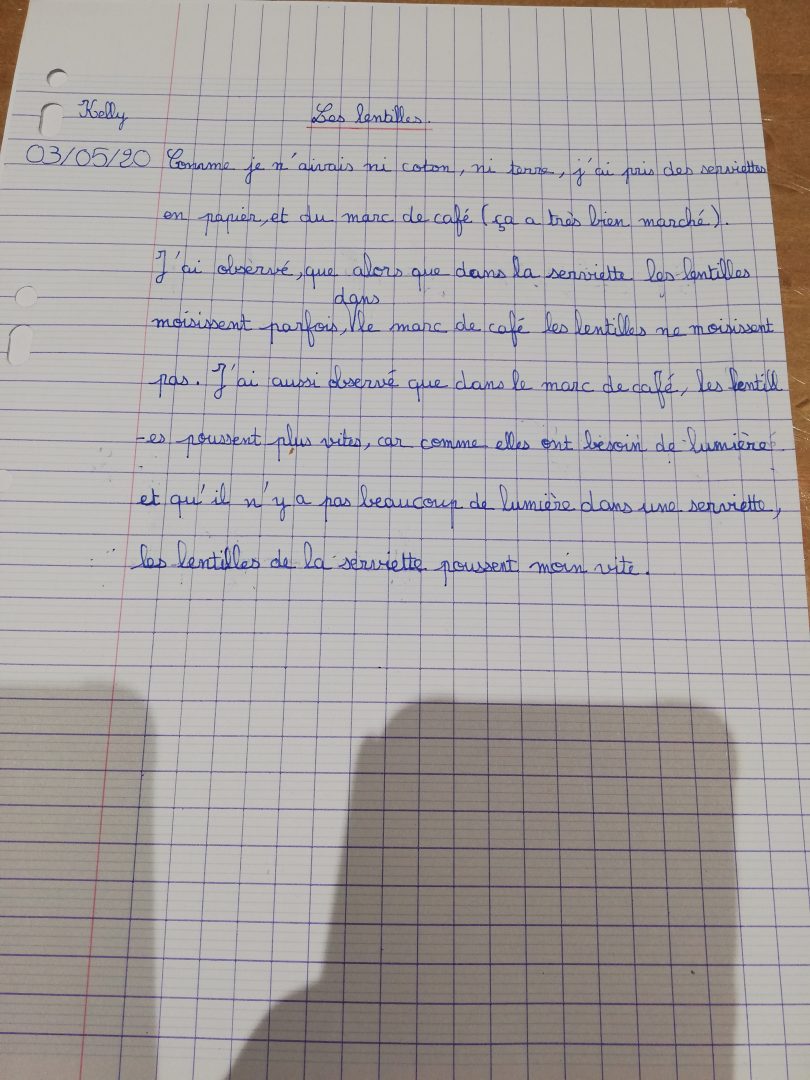 Kelly
Les lentilles.
03/05/20 Comme je n'aivais ni coton, ni terre, j'ai pris des serviettes
en papier, et du marc de café (ça a très bien marché).
J'ai observé, que alors que dans la serviette les lentilles
dans
moisissent parfois, le marc de café les lentilles ne moisissent
pas. J'ai aussi observé que dans le marc de café, les lentill
-es poussent plus vites, car comme elles ont besoin de lumière
et qu'il n'y a pas beaucoup de lumière dans une serviette,
les lentilles de la serviette poussent moin vite.